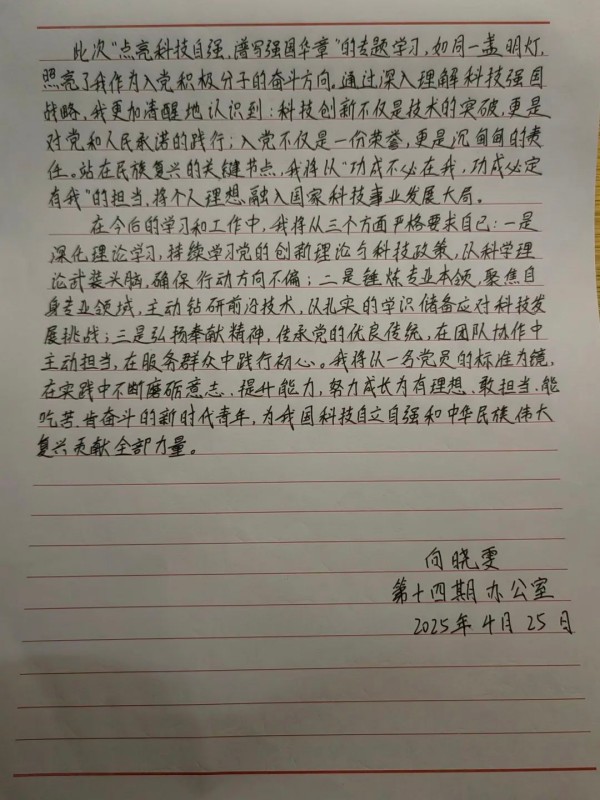 此次“点亮科技自强,谱写强国华章”的专题学习,如同一盏明灯,
照亮了我作为入党积极分子的奋斗方向。通过深入理解科技强国
战略,我更加清醒地认识到:科技创新不仅是技术的突破,更是
对党和人民承诺的践行;入党不仅是一份荣誉,更是沉甸甸的责
任。站在民族复兴的关键节点,我将以“功成不必在我,功成必定
有我”的担当,将个人理想融入国家科技事业发展大局。
在今后的学习和工作中,我将从三个方面严格要求自己:一是
深化理论学习,持续学习党的创新理论与科技政策,以科学理
论武装头脑,确保行动方向不偏;二是锤炼专业本领,聚焦自
身专业领域,主动钻研前沿技术,以扎实的学识储备应对科技发
展挑战;三是弘扬奉献精神,传承党的优良传统,在团队协作中
主动担当,在服务群众中践行初心。我将以一名党员的标准为镜,
在实践中不断磨砺意志、提升能力,努力成长为有理想、敢担当、能
吃苦、肯奋斗的新时代青年,为我国科技自立自强和中华民族伟大
复兴贡献全部力量。
向晓雯
第十四期办公室
2025年4月25日